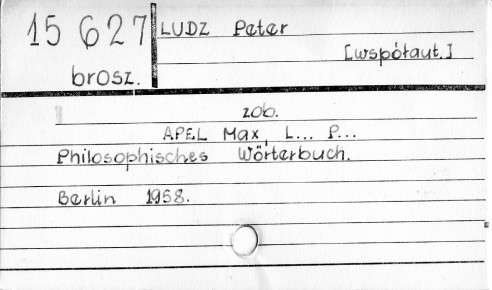 15 627
LUDZ Peter
[współaut.]
brosz.
zob.
APEL Max, L... P...
Philosophisches Wörterbuch.
Berlin 1958.